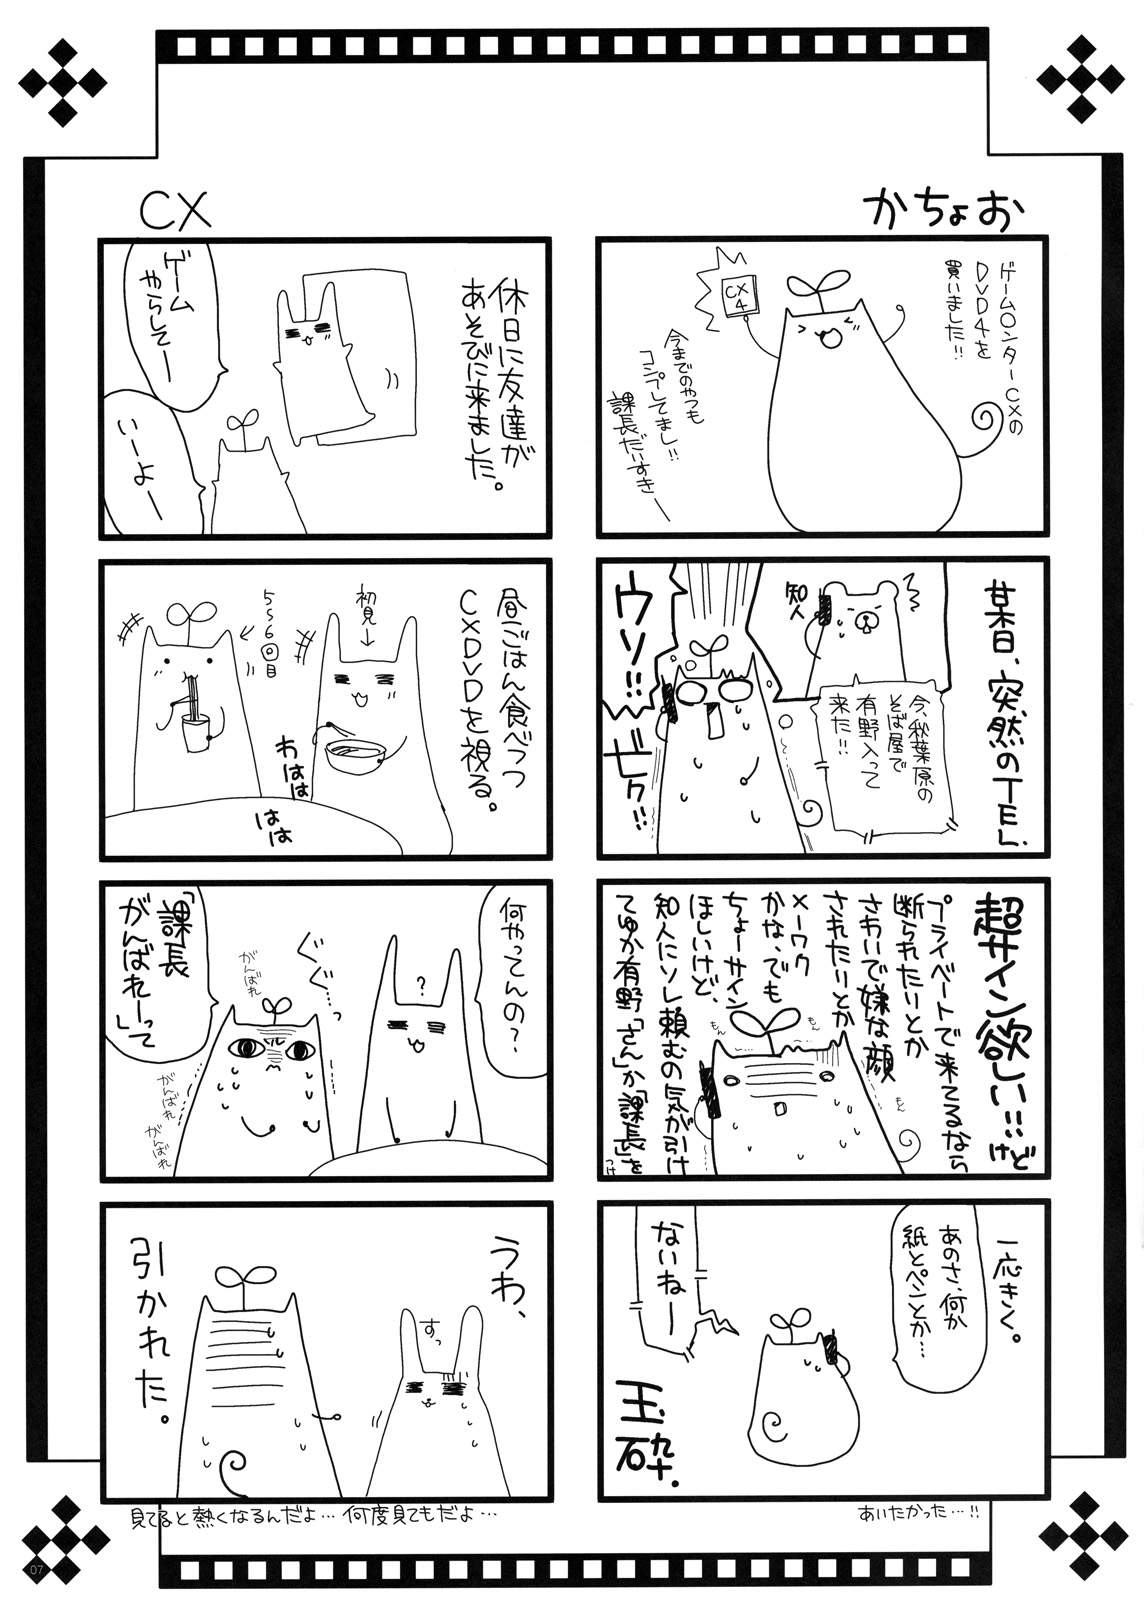 かちょお
ゲーム○ンターCXの
DVD4を
買いました!!
CX
4
今までのやつも
コンプしてまし!!
課長だいすきー
某日、突然のTEL.
知人
今、秋葉原の
そば屋で
有野入って
来た!!
ウソ!!
ビクゥ!!
超サイン欲しい…!!けど
プライベートで来てるなら
断られたいとか
さわいで嫌な顔
されたいとか
メーワク
かな、でも
ちょーサイン
ほしいけど、
知人にソレ頼むの気が引け
てゆか有野「さん」か「課長」を
つけ
もん
もん
もん
一応きく。
あのさ、何か
紙とペンとか…
ないねー
玉砕.
あいたかった…!!
CX
休日に友達が
あそびに来ました。
ゲーム
やらしてー
いーよー
昼ごはん食べつつ
CXDVDを視る。
初見→
5~6回目
わははは
はは
何やってんの?
?
ぐぐ…っ
がんばれ
「課長
がんばれー」って
がんばれ
がんばれ
うわ、
すっ
引かれた。
見てると熱くなるんだよ…何度見てもだよ…
07